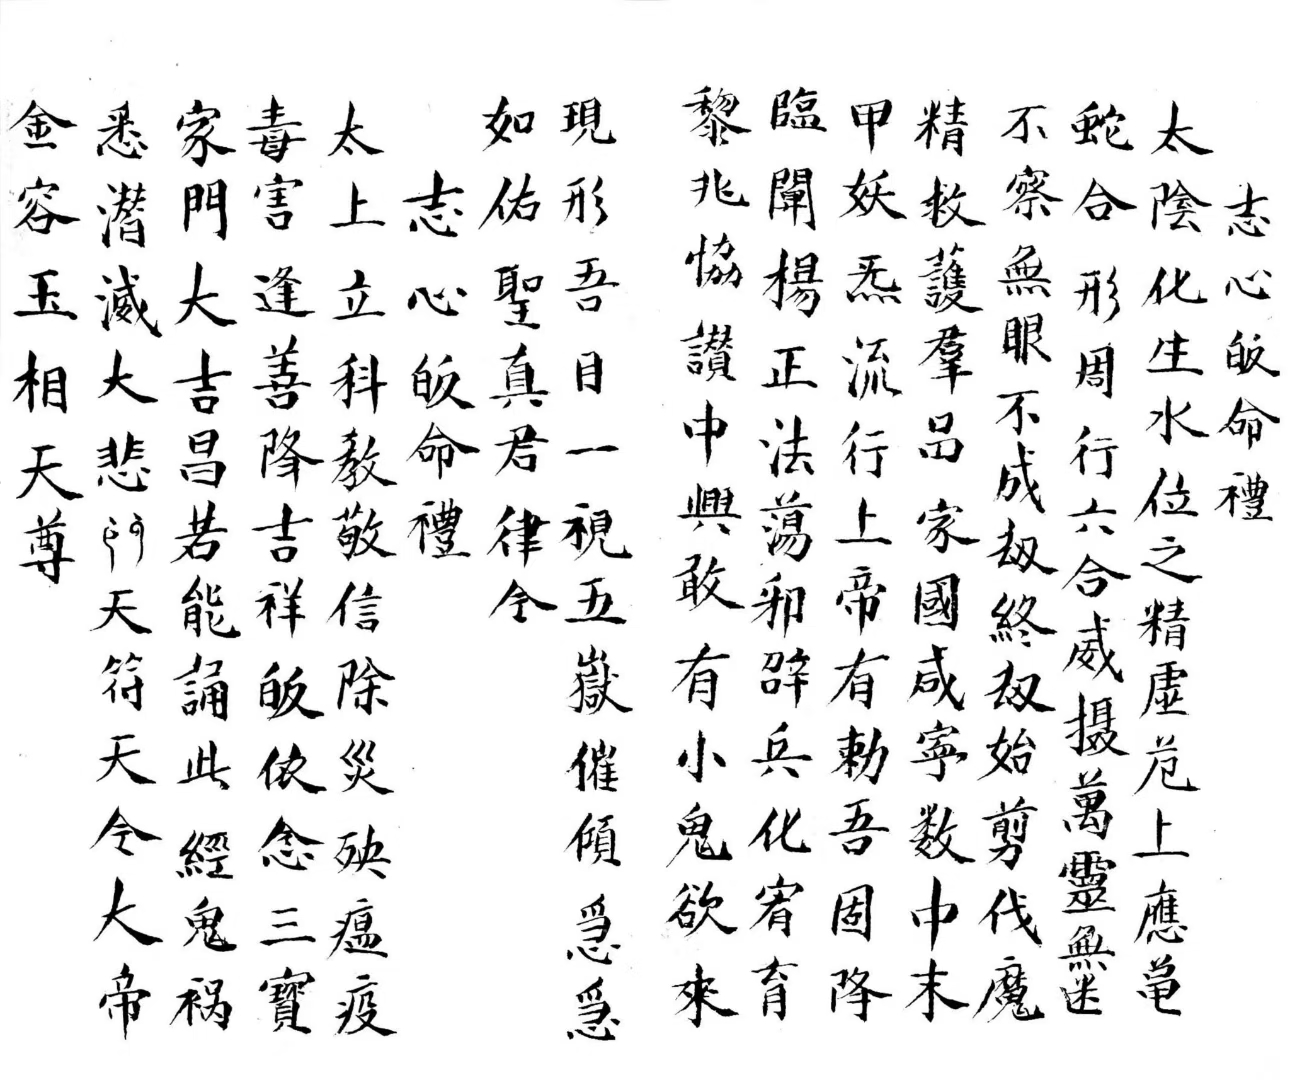 志心皈命禮
太陰化生水位之精虛危上應龜
蛇合形周行六合威摄萬靈無迷
不察無眼不成刼終刼始剪伐魔
精救護羣品家國咸寧数中末
甲妖炁流行上帝有勅吾固降
臨闡楊正法蕩邪辟兵化宥育
黎兆恊讃中興敢有小鬼欲來
現形吾目一視五嶽催傾急急
如佑聖真君律令
志心皈命禮
太上立科教敬信除災殃瘟疫
毒害逢善降吉祥皈依念三寶
家門大吉昌若能誦此經鬼祸
悉潜滅大悲阿天符天令大帝
金容玉相天尊